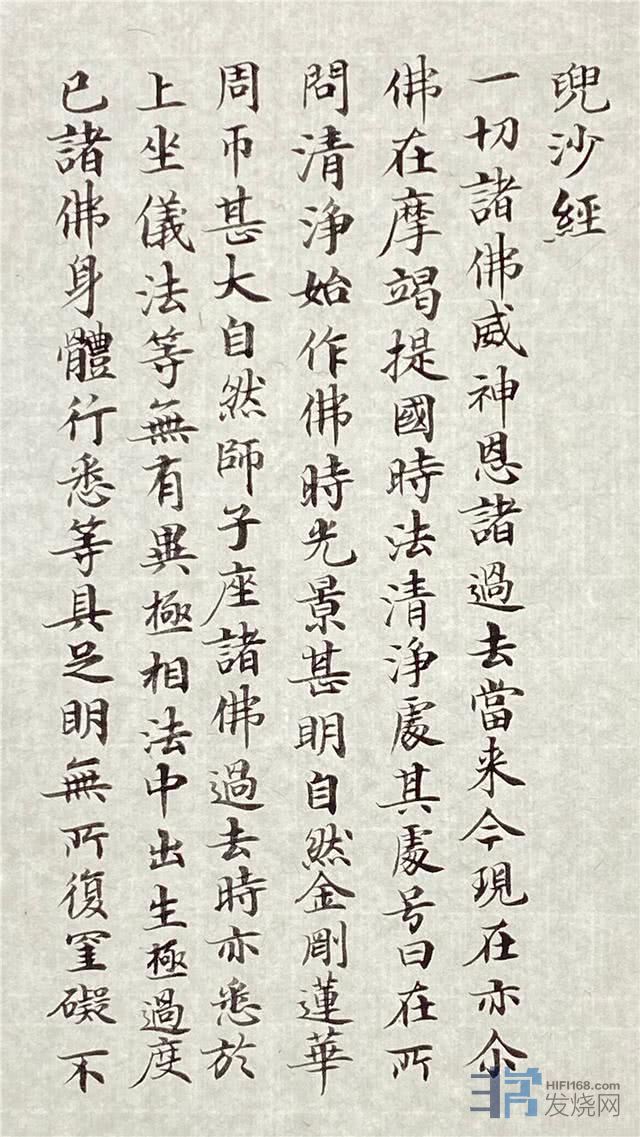 兜沙經
一切諸佛威神恩諸過去當来今現在亦尒
佛在摩竭提國時法清淨處其處号曰在所
問清淨始作佛時光景甚明自然金剛蓮華
周帀甚大自然師子座諸佛過去時亦悉於
上坐儀法等無有異極相法中出生極過度
已諸佛身體行悉等具足明無所復罣礙不
HIFI168.com
发烧网